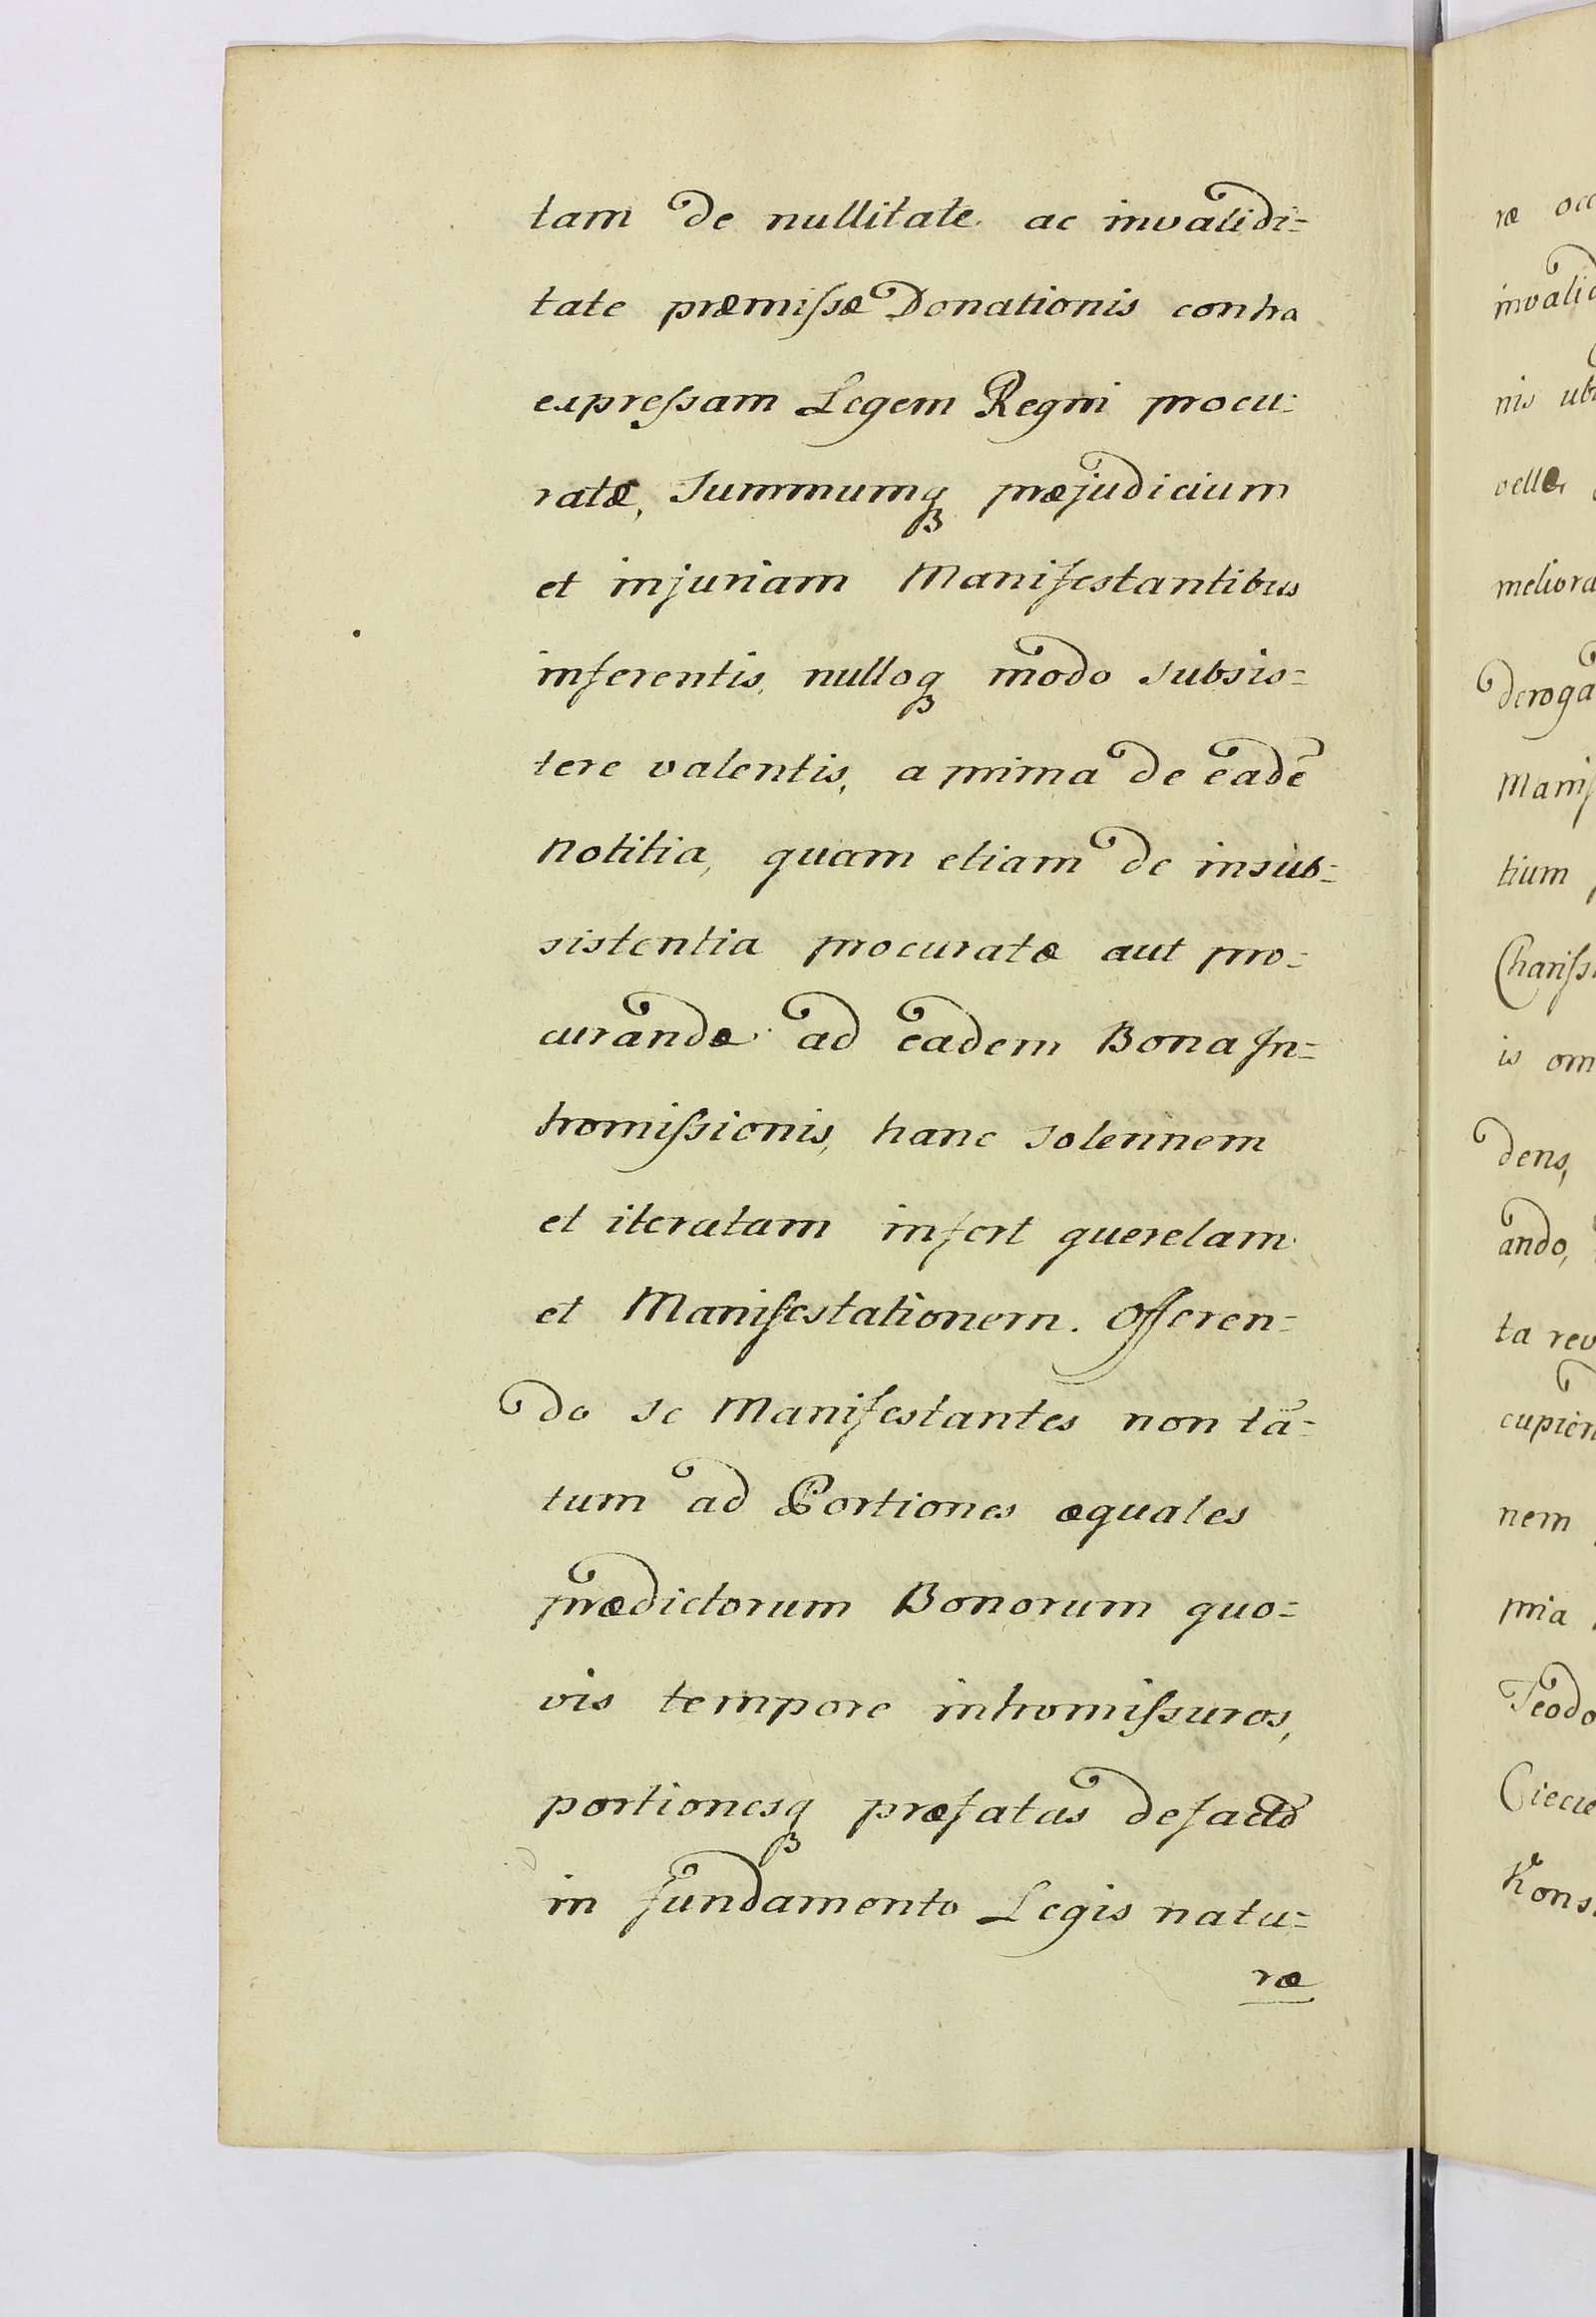 tam de nullitate ac invalidi=
tate præmiſsæ Donationis contra
expreſsam Legem Regni procu=
ratæ, Summumq₃ præjudicium
et injuriam Manifestantibus
inferentis, nulloq₃ modo subsis=
tere valentis, a prima de eadē
notitia, quam etiam de insub=
sistentia procuratæ aut pro=
curandæ ad eadem Bona In=
tromiſsionis, hanc solennem
et iteratam infert querelam
et Manifestationem. Offeren=
do se Manifestantes non tā=
tum ad Portiones æquales
prædictorum Bonorum quo=
vis tempore intromiſsuros,
portionesq₃ præfatas defacto
in fundamento Legis natu=
ræ
ræ occ
invalid
nis ub
velle
meliora
deroga
Manif
tium
Chariſs
is om
dens,
ando,
ta rev
cupien
nem
pria
Teodo
Ciecie
Kons